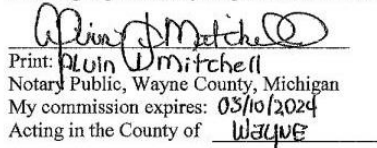 Alvin D Mitchell
Print: Alvin D Mitchell
Notary Public, Wayne County, Michigan
My commission expires: 03/10/2024
Acting in the County of Wayne